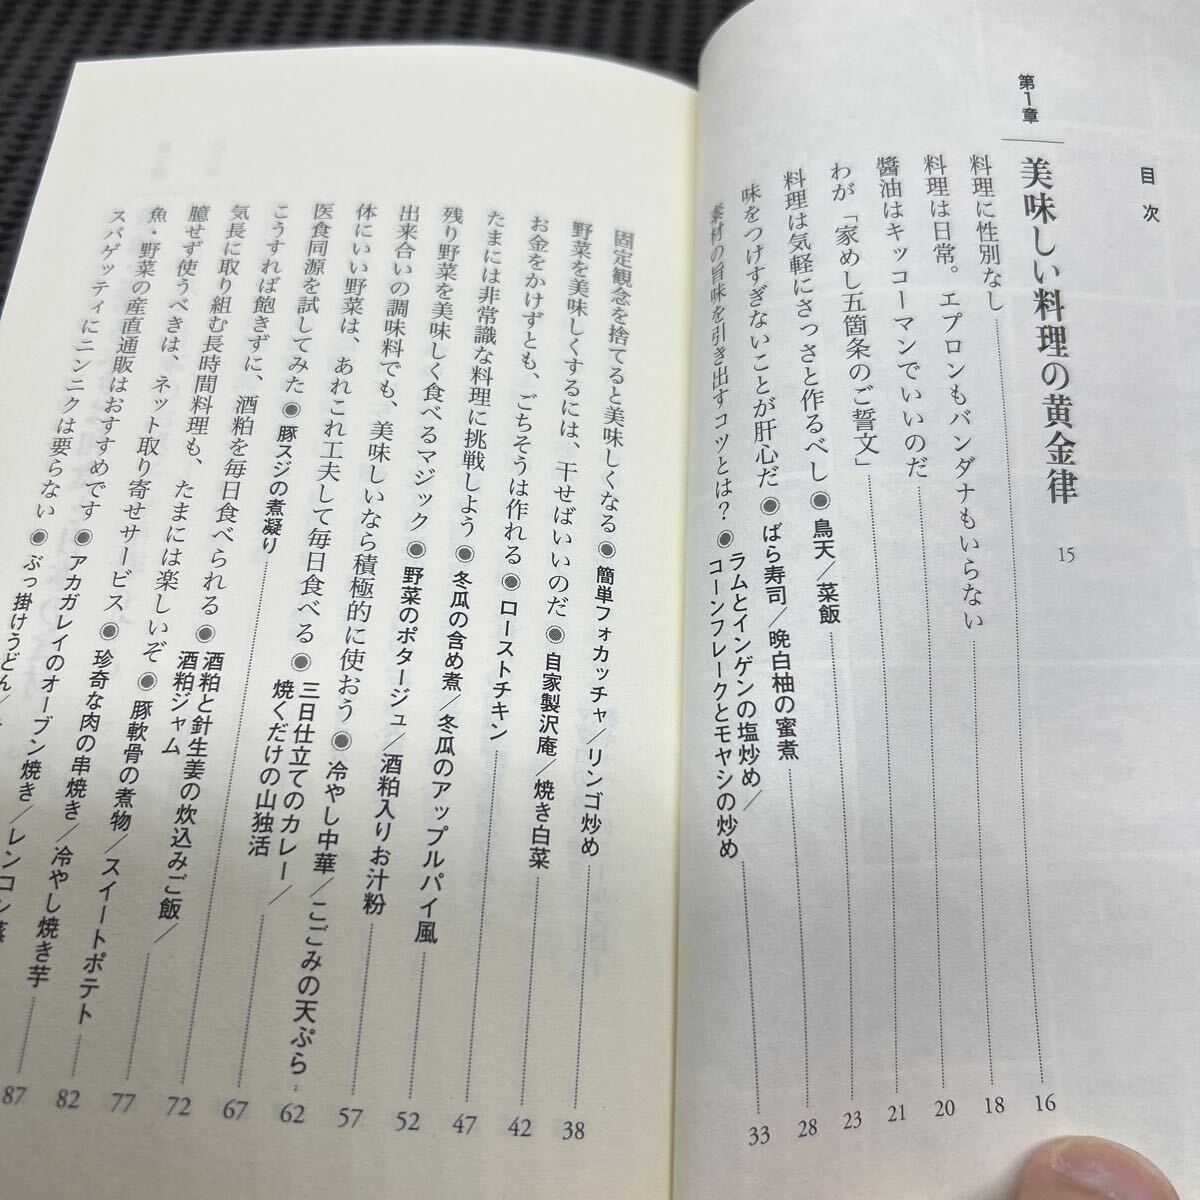 目次
第1章 美味しい料理の黄金律 15
料理に性別なし 16
料理は日常。エプロンもバンダナもいらない 18
醬油はキッコーマンでいいのだ 20
わが「家めし五箇条のご誓文」 21
料理は気軽にさっさと作るべし ◉ 鳥天/菜飯 23
味をつけすぎないことが肝心だ ◉ ばら寿司/晩白柚の蜜煮 28
素材の旨味を引き出すコツとは? ◉ ラムとインゲンの塩炒め/
コーンフレークとモヤシの炒め 33
固定観念を捨てると美味しくなる ◉ 簡単フォカッチャ/リンゴ炒め 38
野菜を美味しくするには、干せばいいのだ ◉ 自家製沢庵/焼き白菜 42
お金をかけずとも、ごちそうは作れる ◉ ローストチキン 47
たまには非常識な料理に挑戦しよう ◉ 冬瓜の含め煮/冬瓜のアップルパイ風 52
残り野菜を美味しく食べるマジック ◉ 野菜のポタージュ/酒粕入りお汁粉 57
出来合いの調味料でも、美味しいなら積極的に使おう ◉ 冷やし中華/ごごみの天ぷら 62
体にいい野菜は、あれこれ工夫して毎日食べる ◉ 三日仕立てのカレー/
焼くだけの山独活 67
医食同源を試してみた ◉ 豚スジの煮凝り 72
こうすれば飽きずに、酒粕を毎日食べられる ◉ 酒粕と針生姜の炊込みご飯/
酒粕ジャム 77
気長に取り組む長時間料理も、たまには楽しいぞ ◉ 豚軟骨の煮物/スイートポテト 82
臆せず使うべきは、ネット取り寄せサービス ◉ 珍奇な肉の串焼き/冷やし焼き芋 87
魚・野菜の産直通販はおすすめです ◉ アカガレイのオーブン焼き/レンコン蒸
スパゲッティにニンニクは要らない ◉ ぶっ掛けうどん/